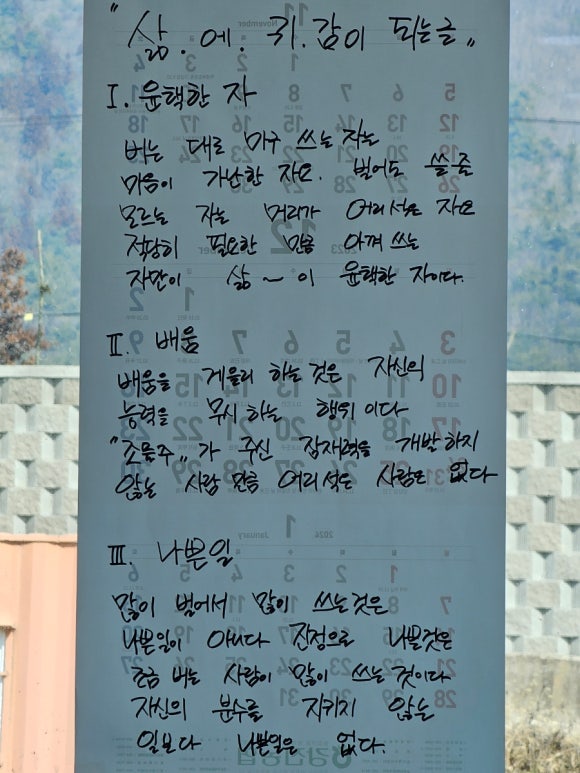 "삶.에.귀.감이 되는글"
I. 윤택한 자
버는 대로 마구 쓰는 자는
마음이 가난한 자요. 벌어도 쓸줄
모르는 자는 머리가 어리석은 자요
적당히 필요한 만큼 아껴 쓰는
자만이 삶~이 윤택한 자이다.
II. 배움
배움을 게을리 하는것은 자신의
능력을 무시하는 행위 이다
"조물주"가 주신 잠재력을 개발하지
않는 사람 만큼 어리석은 사람은 없다
III. 나쁜일
많이 벌어서 많이 쓰는것은
나쁜일이 아니다 진정으로 나쁜것은
조금 버는 사람이 많이 쓰는 것이다
자신의 분수를 지키지 않는
일보다 나쁜일은 없다.